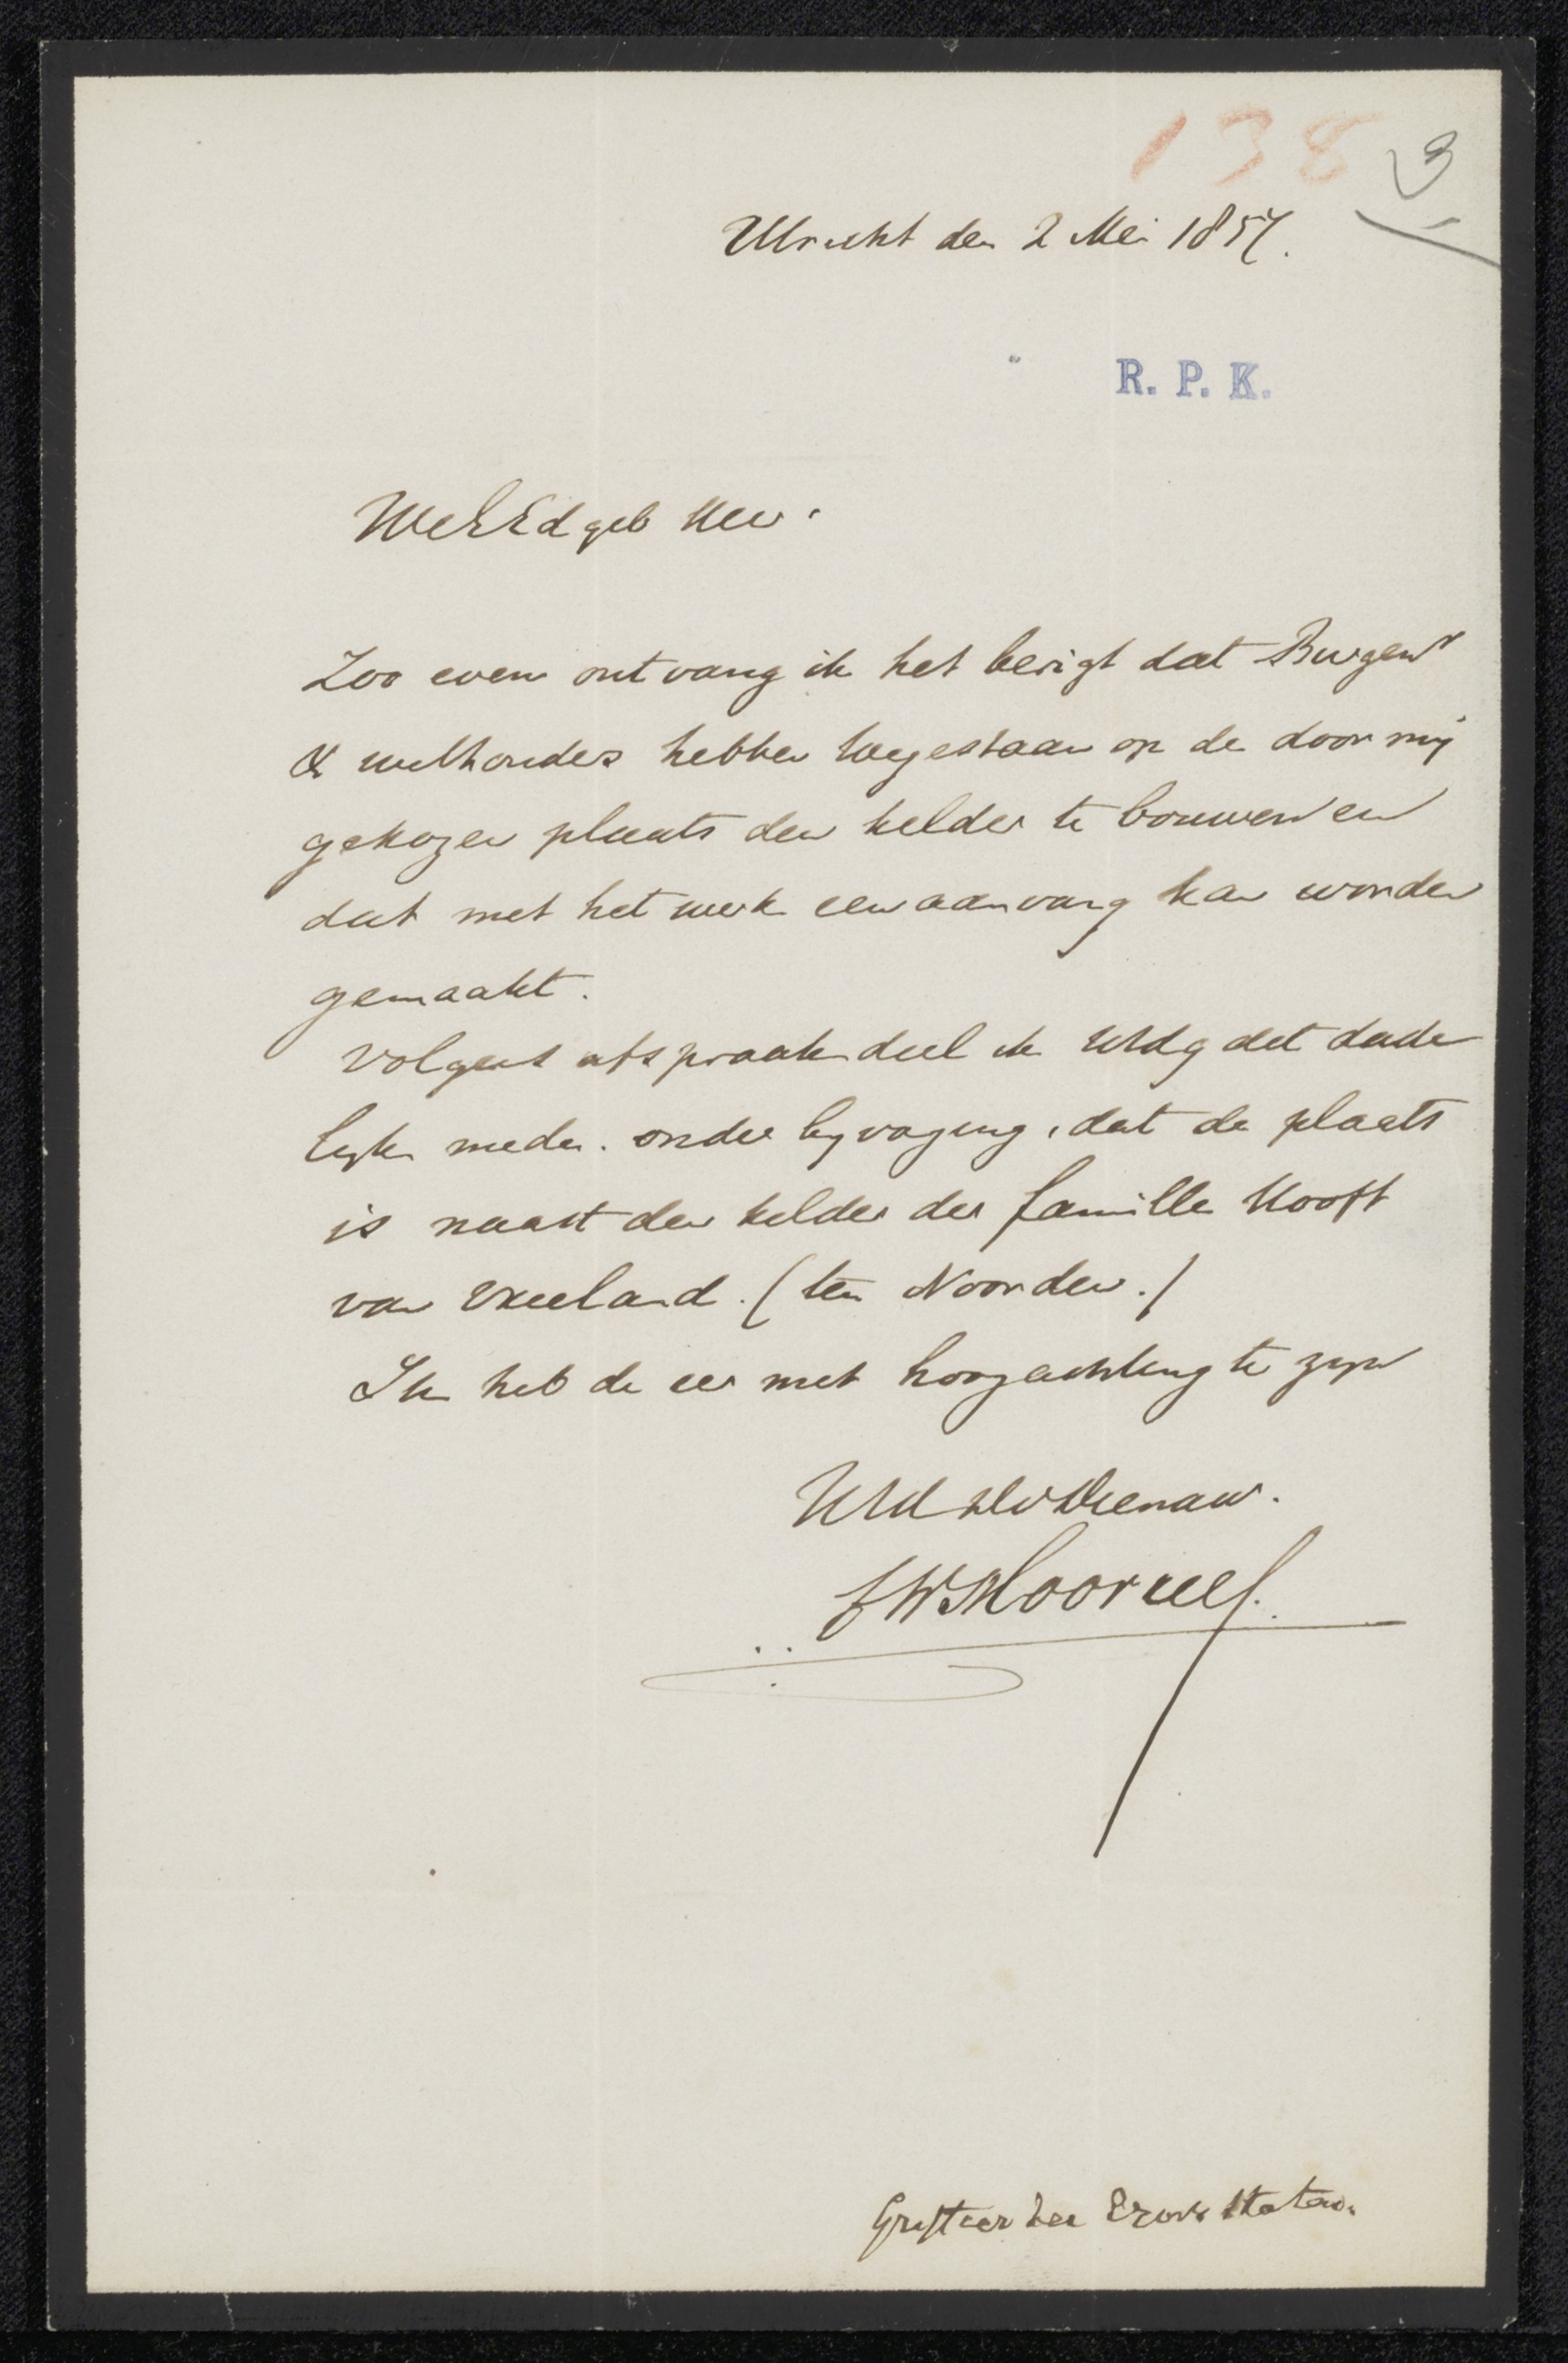 138 3
Utrecht den 2 Mei 1857.
R. P. K.
WelEdgeb Heer.
Zoo even ontvang ik het berigt dat Burgemr
& wethouders hebben toegestaan op de door mij
gekozen plaats den kelder te bouwen en
dat met het werk een aanvang kan worden
gemaakt.
Volgens afspraak deel ik UEdg dit dade
lyk mede. onder byvoging, dat de plaats
is naast den kelder der famille Hooft
van Vreeland. (ten Noorden.)
Ik heb de eer met hoogachting te zyn
UEd dw Dienaar.
Griffier der Prov. Staten.